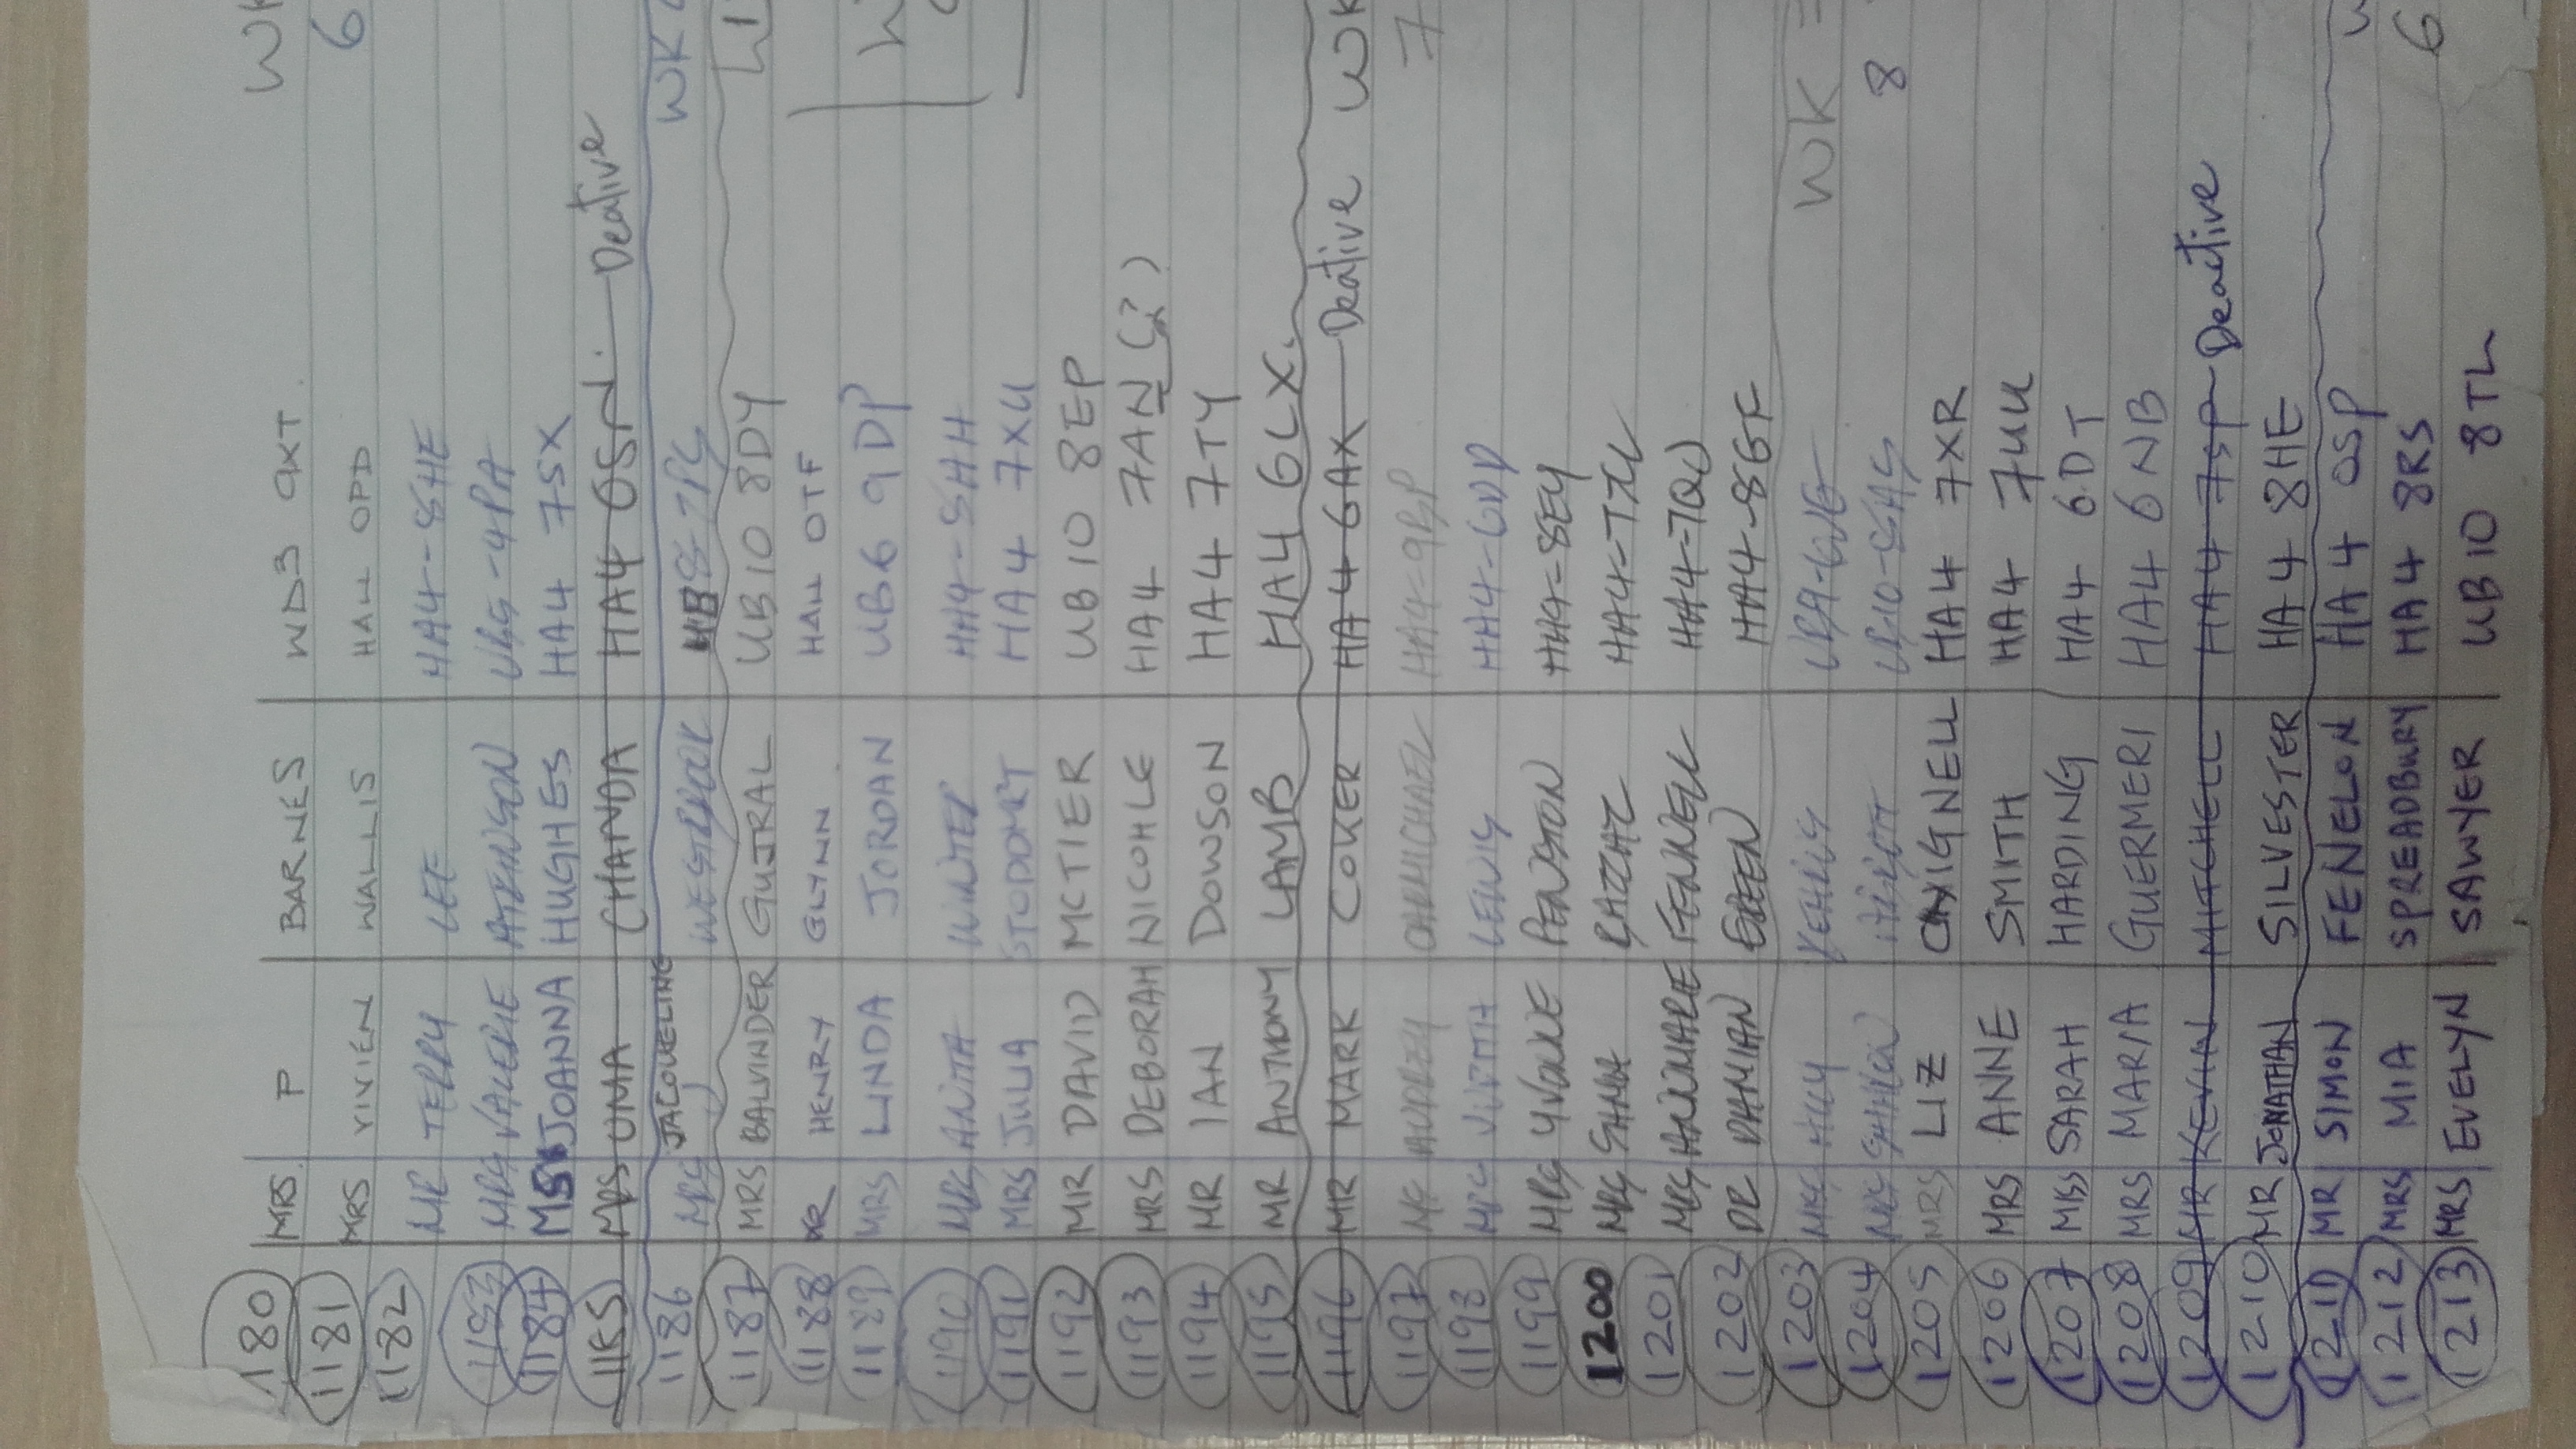 1180 MRS P BARNES WD3 9XT. WK
1181 MRS VIVIEN WALLIS HA4 0PD 6
1182 MR TERRY LEE HA4-8HE
1183 MRS VALERIE ATKINSON UB5-4PA
1184 MS JOANNA HUGHES HA4 7SX
1185 MRS UMA CHANDA HA4 0SN. Deative
1186 MRS JACQUELINE J WESTBROOK UB8-7PG WK
1187 MRS BALVINDER GUJRAL UB10 8DY
1188 MR HENRY GLYNN HA4 0TF
1189 MRS LINDA JORDAN UB6 9DP
1190 MRS ANITA WINTER HA4-8HH
1191 MRS JULIA STODDART HA4 7XU
1192 MR DAVID MCTIER UB10 8EP
1193 MRS DEBORAH NICOHLE HA4 7AN (?)
1194 MR IAN DOWSON HA4 7TY
1195 MR ANTHONY LAMB HA4 6LX.
1196 MR MARK COKER HA4 6AX Deative WK
1197 MS AUDREY CARMICHAEL HA4-9BP 7
1198 MRS JUDITH LEWIS HA4-6DD
1199 MRS YVONNE PENSTON HA4-8EY
1200 MRS HA4-7XL
1201 MRS ANNMARIE FENNELL HA4-7QD
1202 DR DAMIAN GREEN HA4-8GF
1203 MRS WK
1204 MRS SHARON UB10-8AS 8
1205 MRS LIZ CHIGNELL HA4 7XR
1206 MRS ANNE SMITH HA4 7UU
1207 MISS SARAH HARDING HA4 6DT
1208 MRS MARIA GUERMERI HA4 6NB
1209 MR KEVIN MITCHELL HA4 7SP Deactive
1210 MR JONATHAN SILVESTER HA4 8HE
1211 MR SIMON FENELON HA4 0SP
1212 MRS MIA SPREADBURY HA4 8RS 6
1213 MRS EVELYN SAWYER UB10 8TL